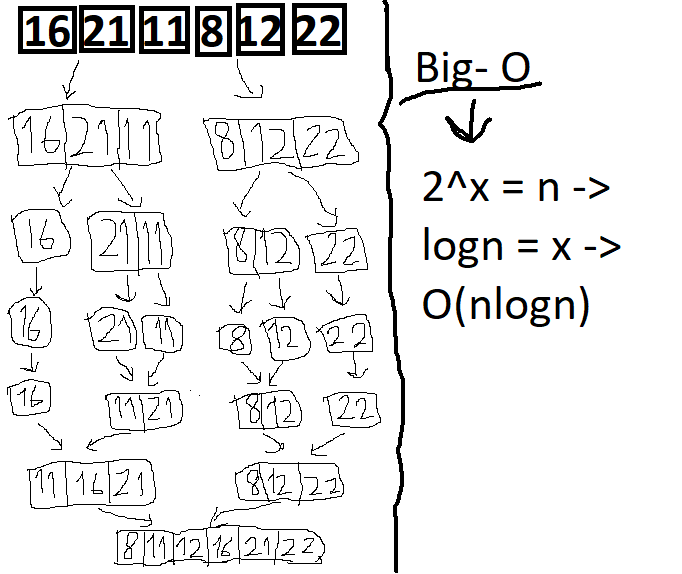 16 21 11 8 12 22
16 21 11 8 12 22
16 21 11 8 12 22
16 21 11 8 12 22
16 11 21 8 12 22
11 16 21 8 12 22
8 11 12 16 21 22
Big- O
2^x = n ->
logn = x ->
O(nlogn)